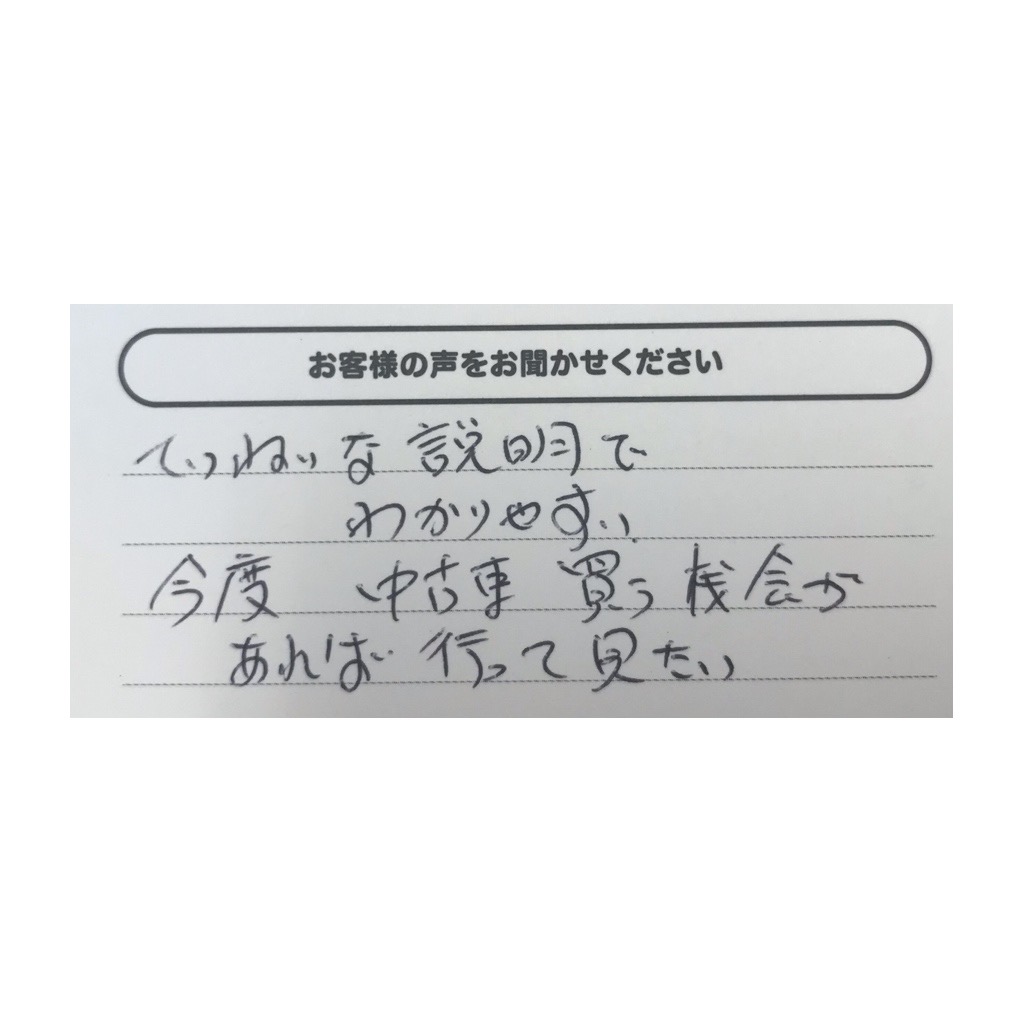 お客様の声をお聞かせください
ていねいな説明で
わかりやすい
今度 中古車 買う機会が
あれば 行って見たい